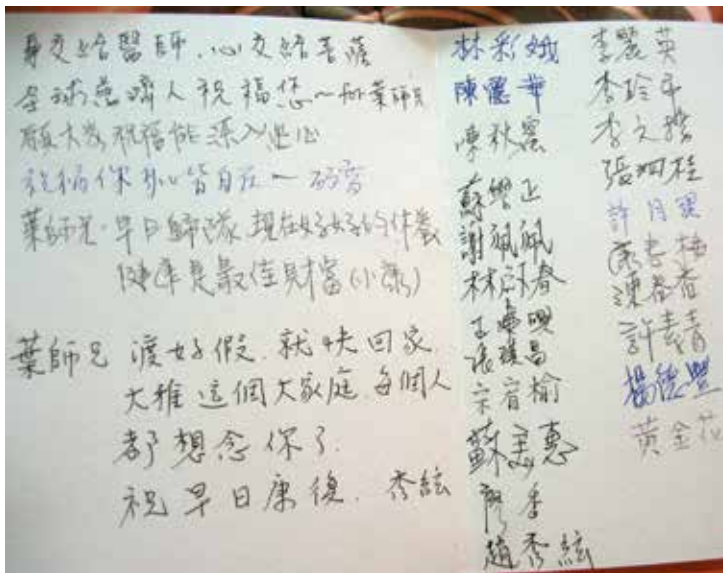 身交給醫師.心交給菩薩
全球慈濟人祝福您～林葉師兄
願大家祝福能深入您心
祝福你身心皆自在～
葉師兄.早日歸隊.現在好好的休養
健康是最佳財富(小漾)
葉師兄 渡好假.就快回家.
大雅這個大家庭.每個人
都想念你了.
祝早日康復. 秀絃
林彩娥
陳麗華
陳秋窓
蘇
謝珮珮
林淑春
王
張琪昌
宋宥榆
蘇美惠
廖季
趙秀絃
李麗英
李玲
李文
張烱桂
許月
陳春香
許素青
楊德豐
黃金